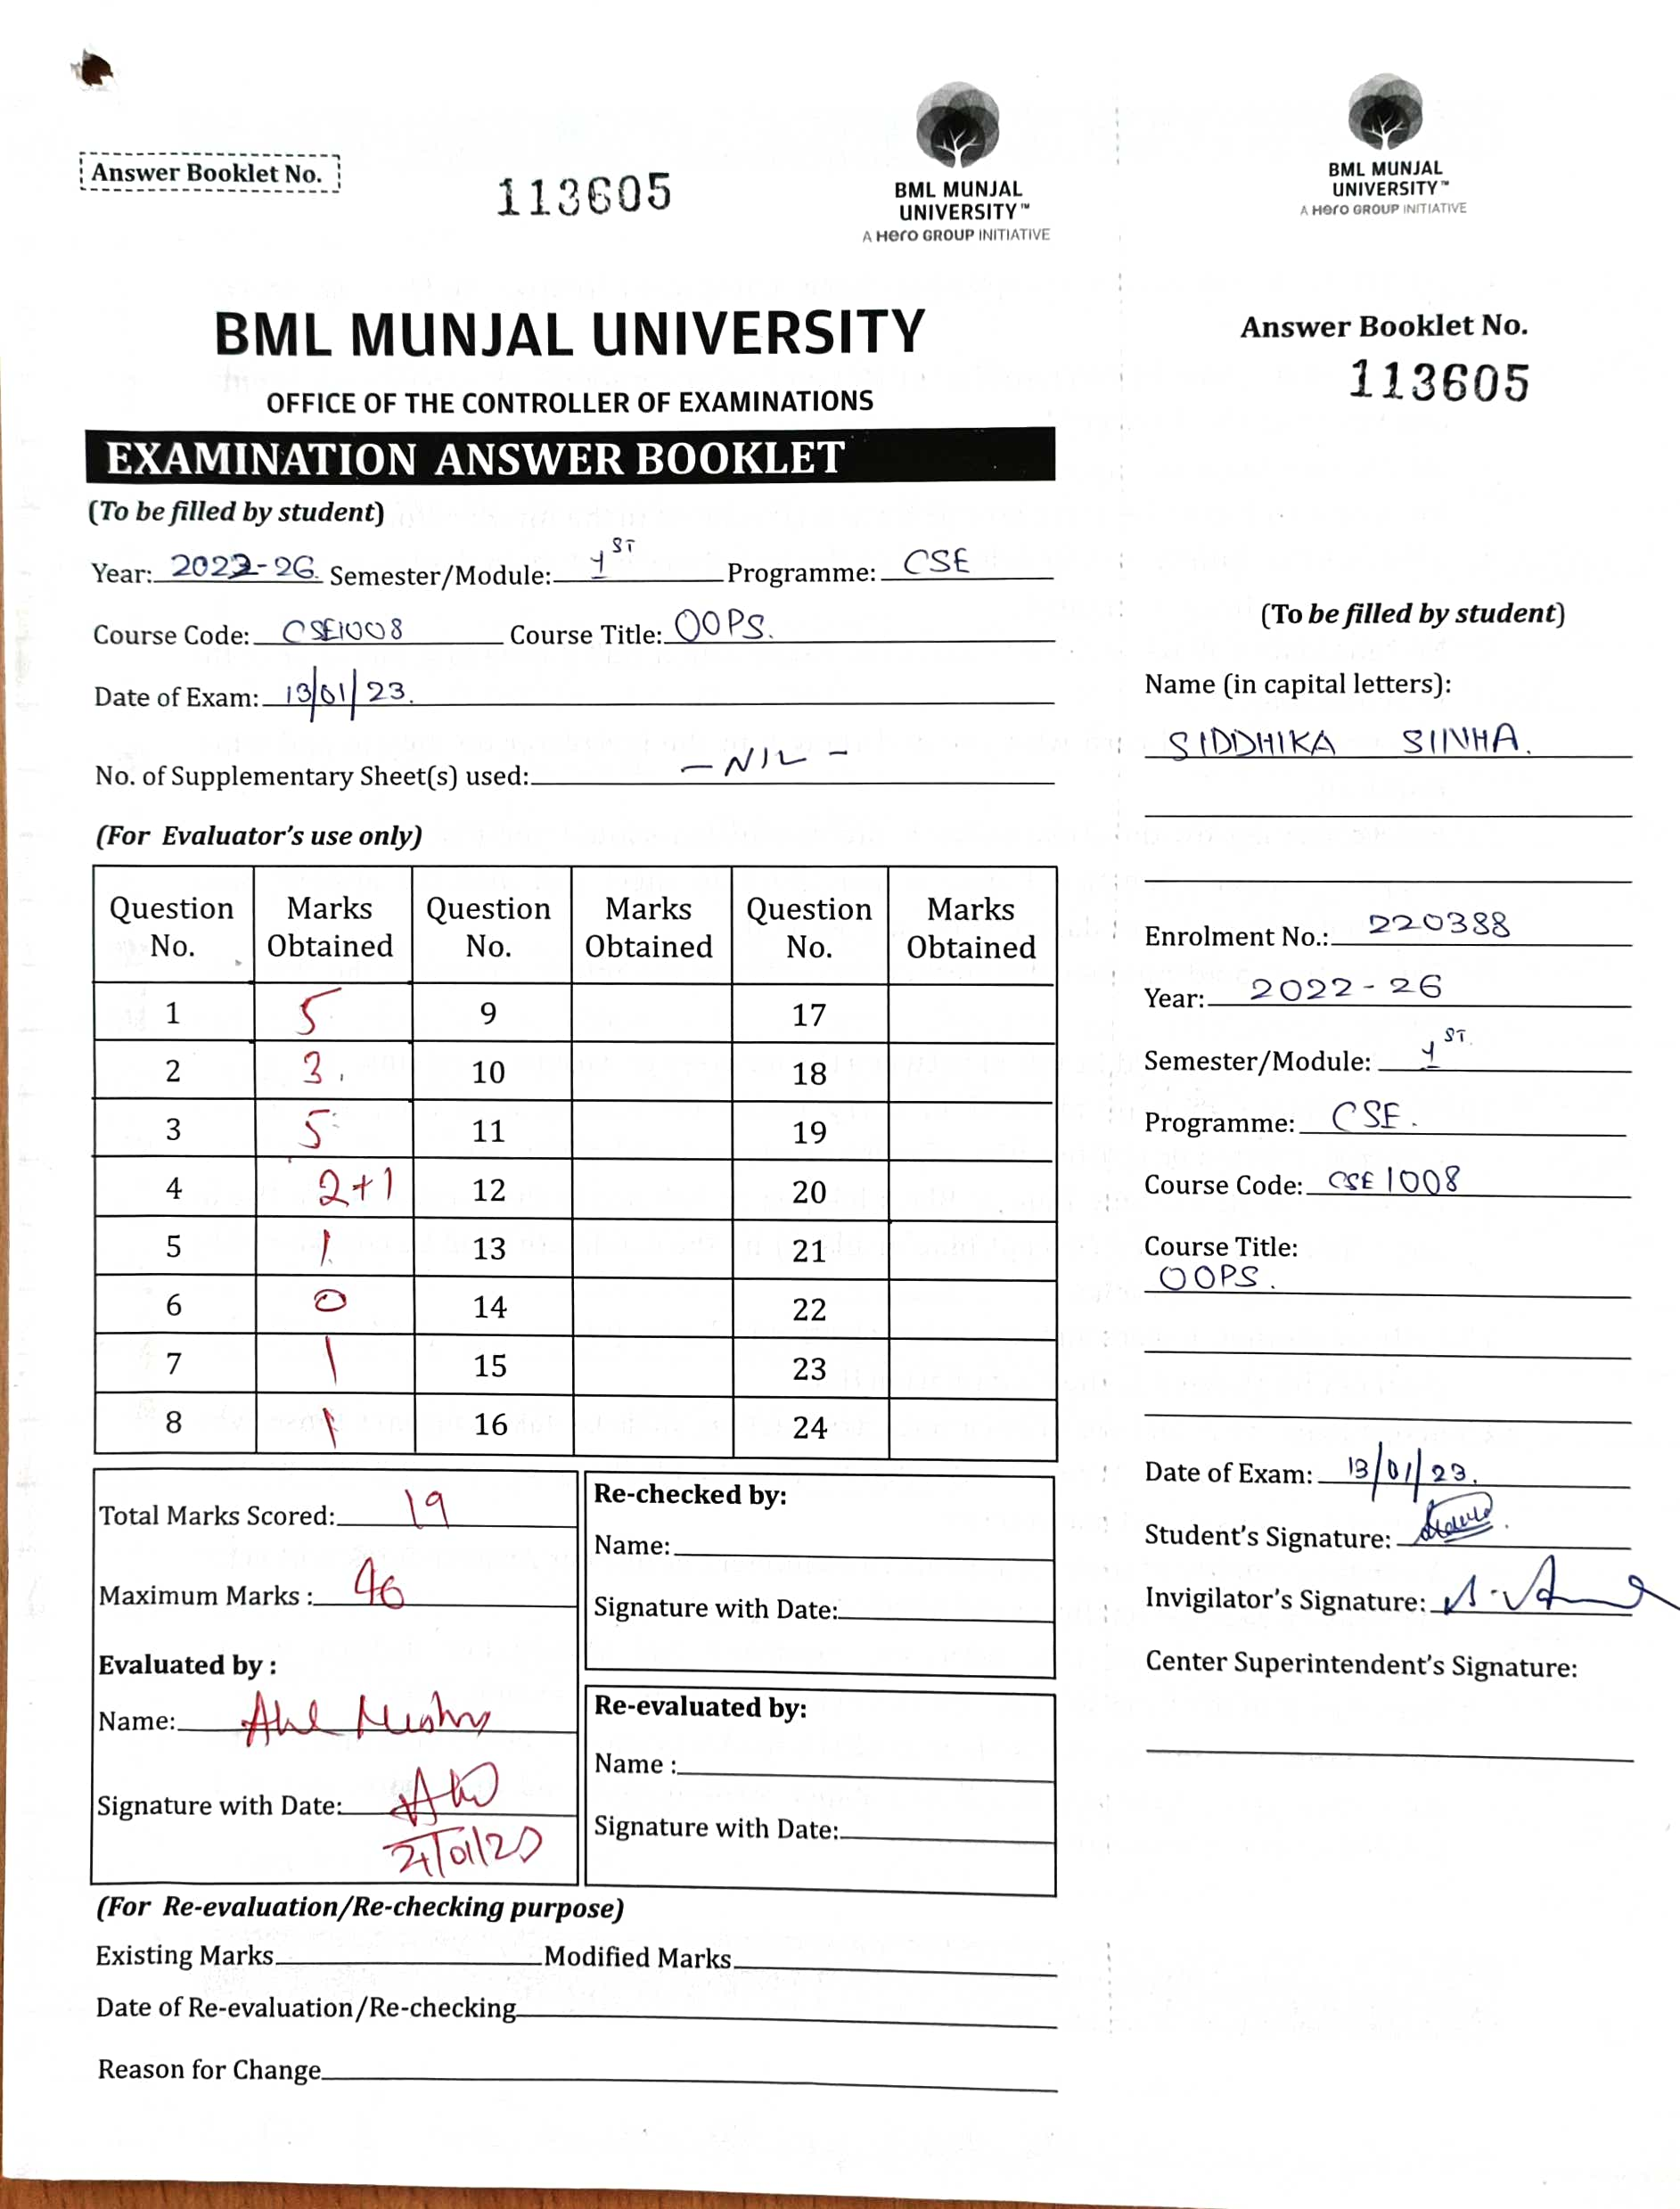 Answer Booklet No.
113605
BML MUNJAL
UNIVERSITY™
A Hero GROUP INITIATIVE
BML MUNJAL UNIVERSITY
OFFICE OF THE CONTROLLER OF EXAMINATIONS
EXAMINATION ANSWER BOOKLET
(To be filled by student)
Year: 2022-26 Semester/Module: 1ST Programme: CSE
Course Code: CSE1008 Course Title: OOPS.
Date of Exam: 13/01/23.
No. of Supplementary Sheet(s) used: - NIL -
(For Evaluator's use only)
Question No. Marks Obtained Question No. Marks Obtained Question No. Marks Obtained
1 5 9 17
2 3. 10 18
3 5 11 19
4 2+1 12 20
5 1 13 21
6 0 14 22
7 1 15 23
8 1 16 24
Total Marks Scored: 19
Maximum Marks : 46
Evaluated by :
Name:
Signature with Date:
Re-checked by:
Name:
Signature with Date:
Re-evaluated by:
Name :
Signature with Date:
(For Re-evaluation/Re-checking purpose)
Existing Marks Modified Marks
Date of Re-evaluation/Re-checking
Reason for Change
BML MUNJAL
UNIVERSITY™
A Hero GROUP INITIATIVE
Answer Booklet No.
113605
(To be filled by student)
Name (in capital letters):
SIDDHIKA SINHA.
Enrolment No.: 220388
Year: 2022-26
Semester/Module: 1ST.
Programme: CSE.
Course Code: CSE1008
Course Title:
OOPS.
Date of Exam: 13/01/23.
Student's Signature:
Invigilator's Signature:
Center Superintendent's Signature: